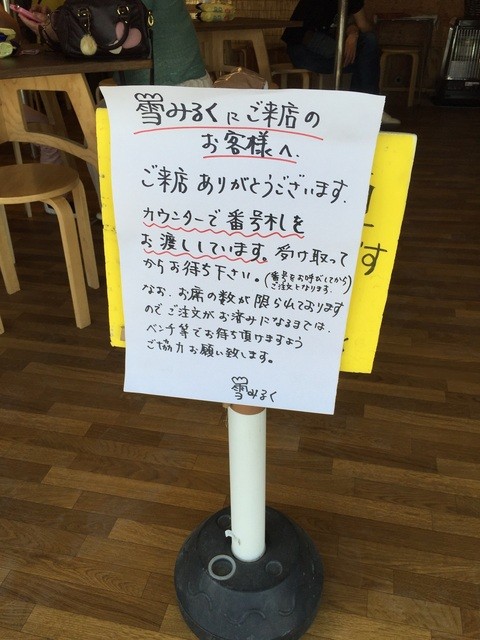 雪みるくにご来店の
お客様へ.
ご来店 ありがとうございます.
カウンターで 番号札を
お渡ししています。受け取って
からお待ち下さい。(番号をお呼びしてから
ご注文となります.)
なお、お席の数が限られております
のでご注文がお済みになるまでは、
ベンチ等でお待ち頂けますよう
ご協力お願い致します。
雪みるく
す